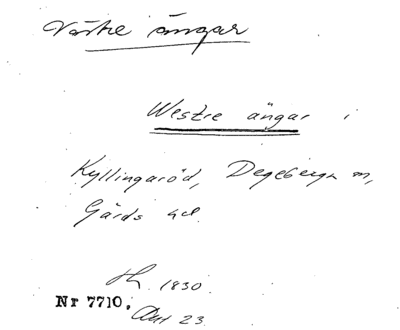 Västre ängar
Westre ängar i
Kyllingaröd, Degeberga sn,
Gärds hd.
1830
Nr 7710.
Akt 23